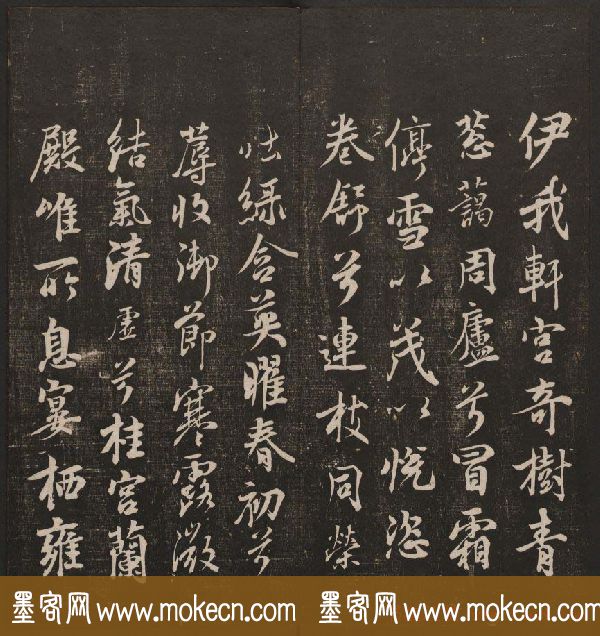 伊我軒宮奇樹青
蔥藹周廬兮冒霜
停雪以茂以悅恣
卷舒兮連枝同榮
吐綠含英曜春初兮
蓐收御節寒露微
結氣清虛兮桂宮蘭
殿唯所息宴栖雍
墨客网 www.mokecn.com 墨客网 www.mokecn.com